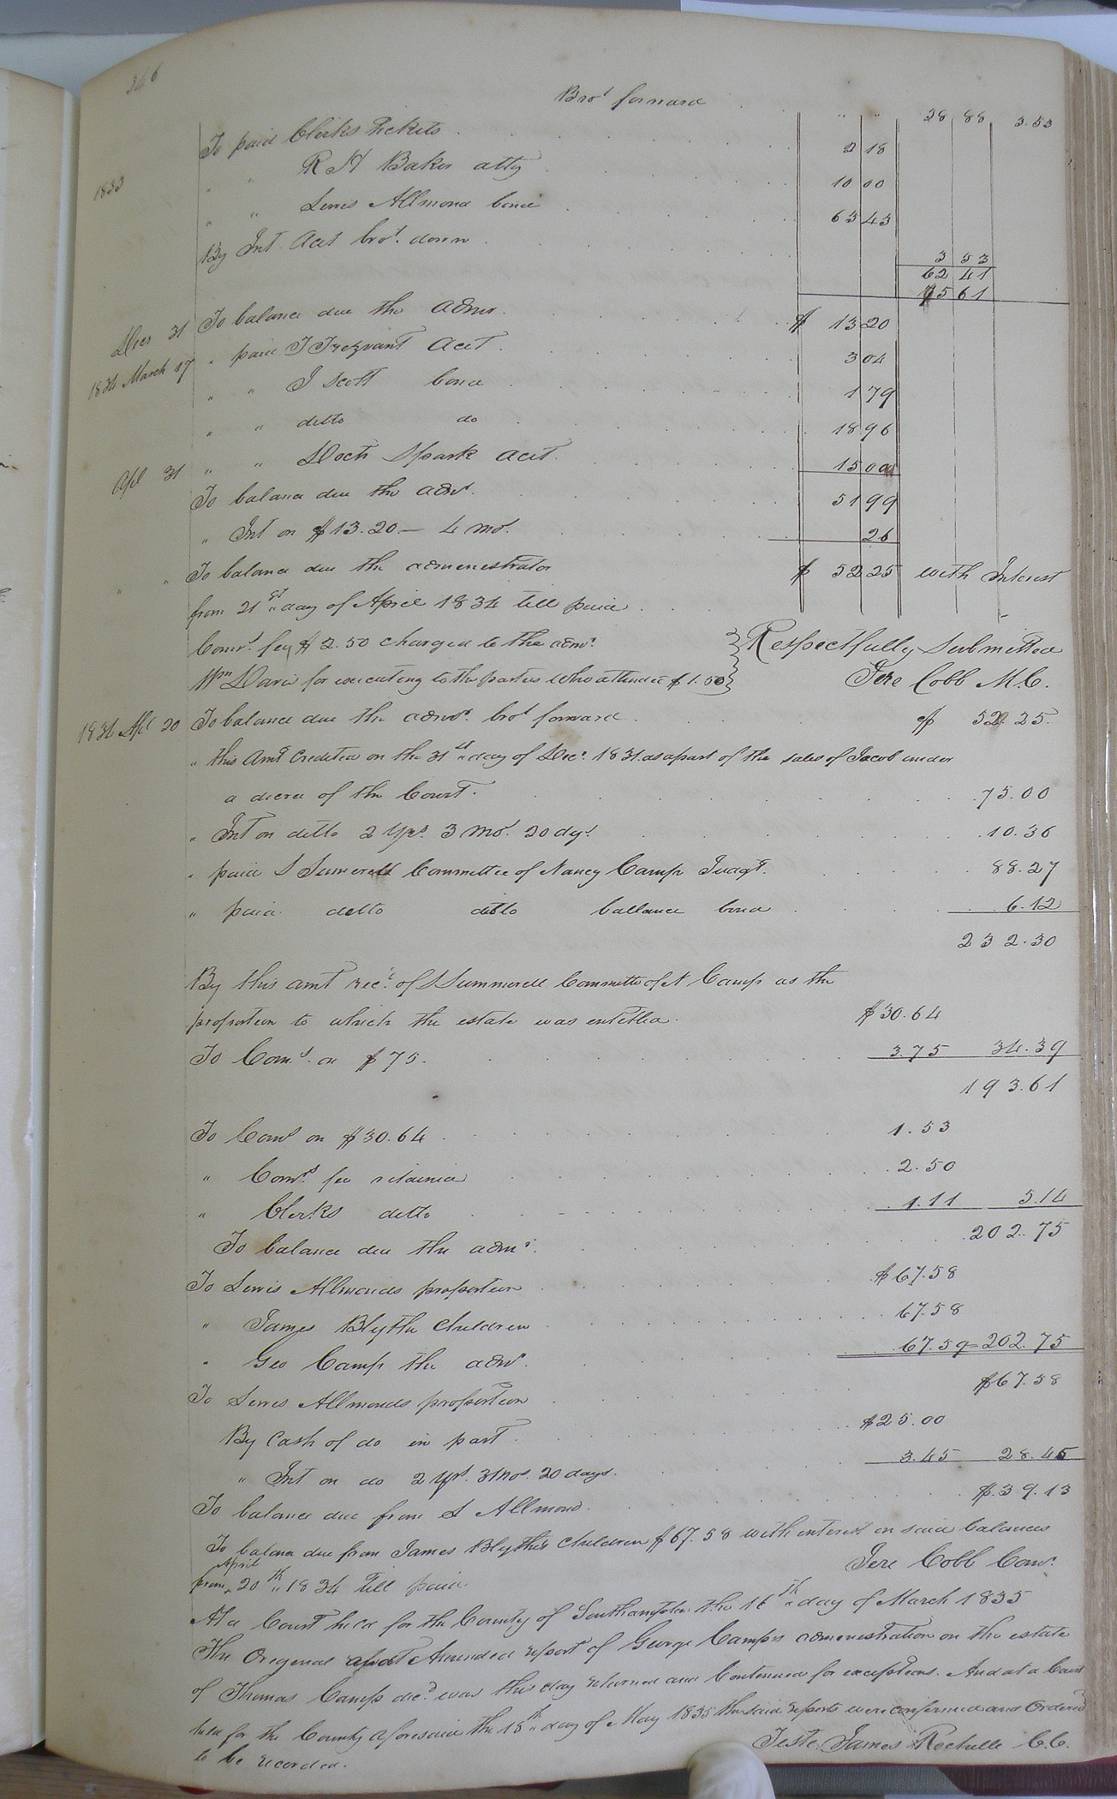 246
Bro.t forward " " 28 88 3.53
To paid Clerks Tickets 2 18
1833 " " R H Baker atty 10 00
" " Lewis Allmond bond 63 43
By Int. Acct bro.t down 3 53
62 41
75 61
Decr 31 To balance due the admr. $ 13 20
1834 March 17 " paid J Trezvant Acct. 3 04
" " J Scott bond 1 79
" " ditto do 18 96
Apl 21 " " Doctr Spark acct. 15 00
To balance due the admr. 51 99
" Int on $13.20 — 4 mos. 26
" To balance due the administrator $ 52 25 with Interest
from 21st day of April 1834 till paid
Comrs. fee $2.50 charged to the admr. Respectfully Submitted
Wm Davis for executing to the parties who attended $1.50 Jere Cobb M.C.
1834 Apl 20 To balance due the admr. brot forward $ 52 25
" this Amt Credited on the 31st day of Dec. 1831 as a part of the sales of Jacob under
a decree of the Court. 75.00
" Int on ditto 2 Yrs. 3 Mos. 20 dys. 10.36
" paid S Sumerell Committee of Nancy Camp Judgt. 88.27
" paid ditto ditto ballance bond 6.12
232.30
By this amt recd. of S Summerell Committe of N Camp as the
proportion to which the estate was entitled. $30.64
To Coms. on $75. 3.75 34.39
193.61
To Coms on $30.64 1.53
" Comrs. fee retained 2.50
" Clerks ditto 1.11 5.14
To balance due the admr. 202.75
To Lewis Allmonds proportion $67.58
" James Blythe Children 67.58
" Geo Camp the admr. 67.59=202.75
To Lewis Allmonds proportion $67.58
By Cash of do in part $25.00
" Int on do 2 Yrs. 3 Mos. 20 days. 3.45 28.45
To balance due from L Allmond $39.13
To balance due from James Blythe's Children $67.58 with interest on said balances
from April 20th 1834 till paid. Jere Cobb Comr.
At a Court held for the County of Southampton the 16th day of March 1835
The Original and Amended report of George Camps administration on the estate
of Thomas Camp decd. was this day returned and Continued for exceptions. And at a Court
held for the County aforesaid the 18th day of May 1835 the said reports were confirmed and Ordered
to be recorded. Teste James Rochelle C.C.